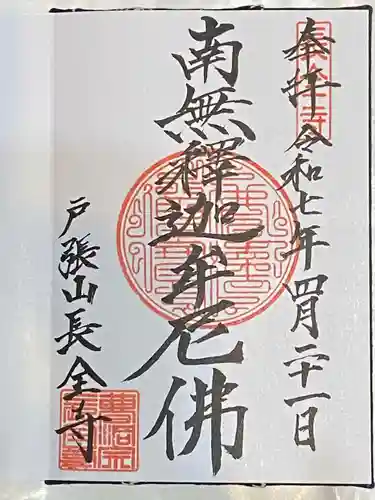 奉拝令和七年四月二十一日
南無釋迦牟尼佛
戸張山長全寺